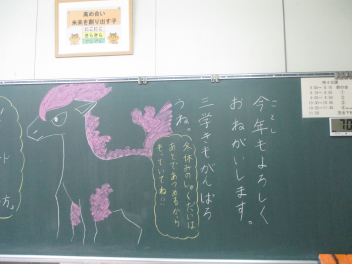 高め合い
未来を創り出す子
にこにこ
きらきら
今年もよろしく
おねがいします。
三学きもがんばろ
うね。
冬休みのしゅくだいは
あとであつめるから
もっていてね!!
ード
方。
70